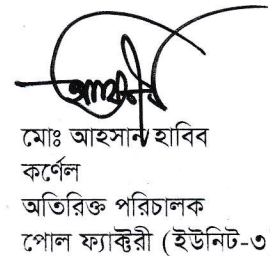 মোঃ আহসান হাবিব
কর্ণেল
অতিরিক্ত পরিচালক
পোল ফ্যাক্টরী (ইউনিট-৩